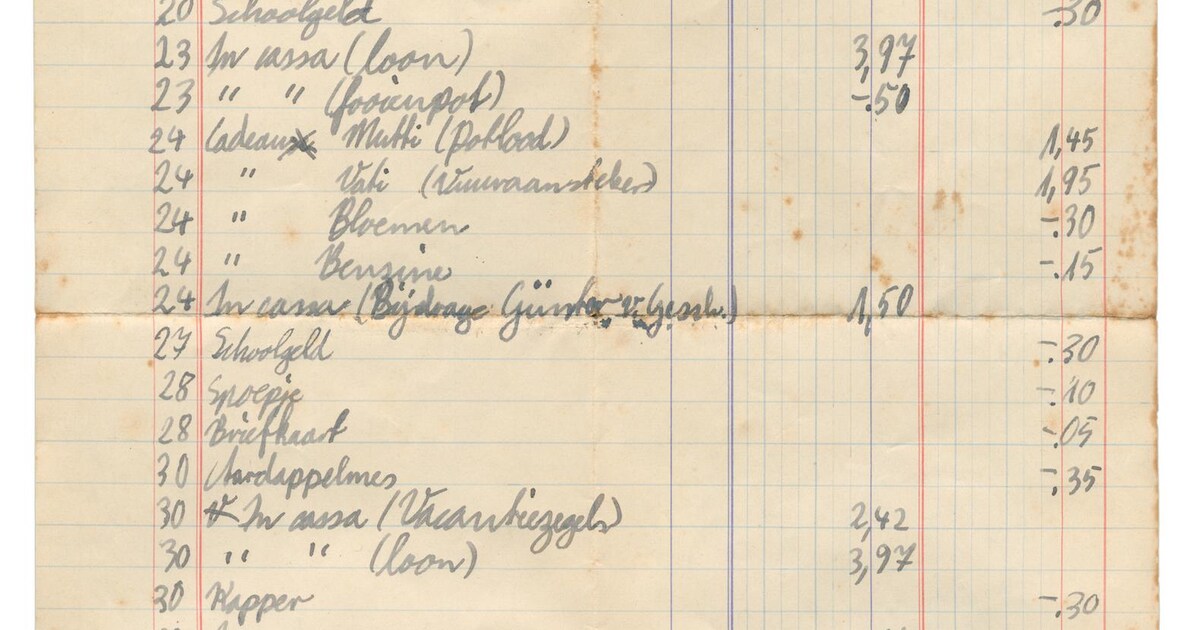 20 Schoolgeld -.30
23 In cassa (loon) 3,97
23 " " (fooienpot) -.50
24 Cadeau Mutti (Potlood) 1,45
24 " Vati (Vuuraansteker) 1,95
24 " Bloemen -.30
24 " Benzine -.15
24 In cassa (Bijdrage Günter v. Gessw.) 1,50
27 Schoolgeld -.30
28 -.10
28 Briefkaart -.05
30 Aardappelmes -.35
30 In cassa (Vacantiezegels) 2,42
30 " " (loon) 3,97
30 Kapper -.30